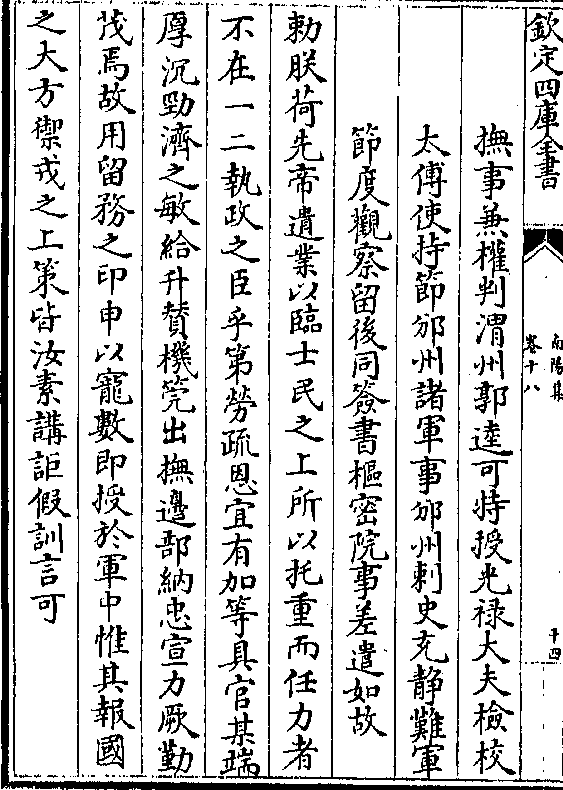 欽定四庫全書
南陽集
卷十八
十四
撫事兼權判渭州郭逵可特授光祿大夫檢校
太傅使持節邠州諸軍事邠州刺史充静難軍
節度觀察留後同簽書樞密院事差遣如故
勅朕荷先帝遺業以臨士民之上所以托重而任力者
不在一二執政之臣乎第勞疏恩宜有加等具官某端
厚沉勁濟之敏給升賛機筦出撫邊部納忠宣力厥勤
茂焉故用留務之印申以寵數即授於軍中惟其報國
之大方禦戎之上策皆汝素講詎假訓言可